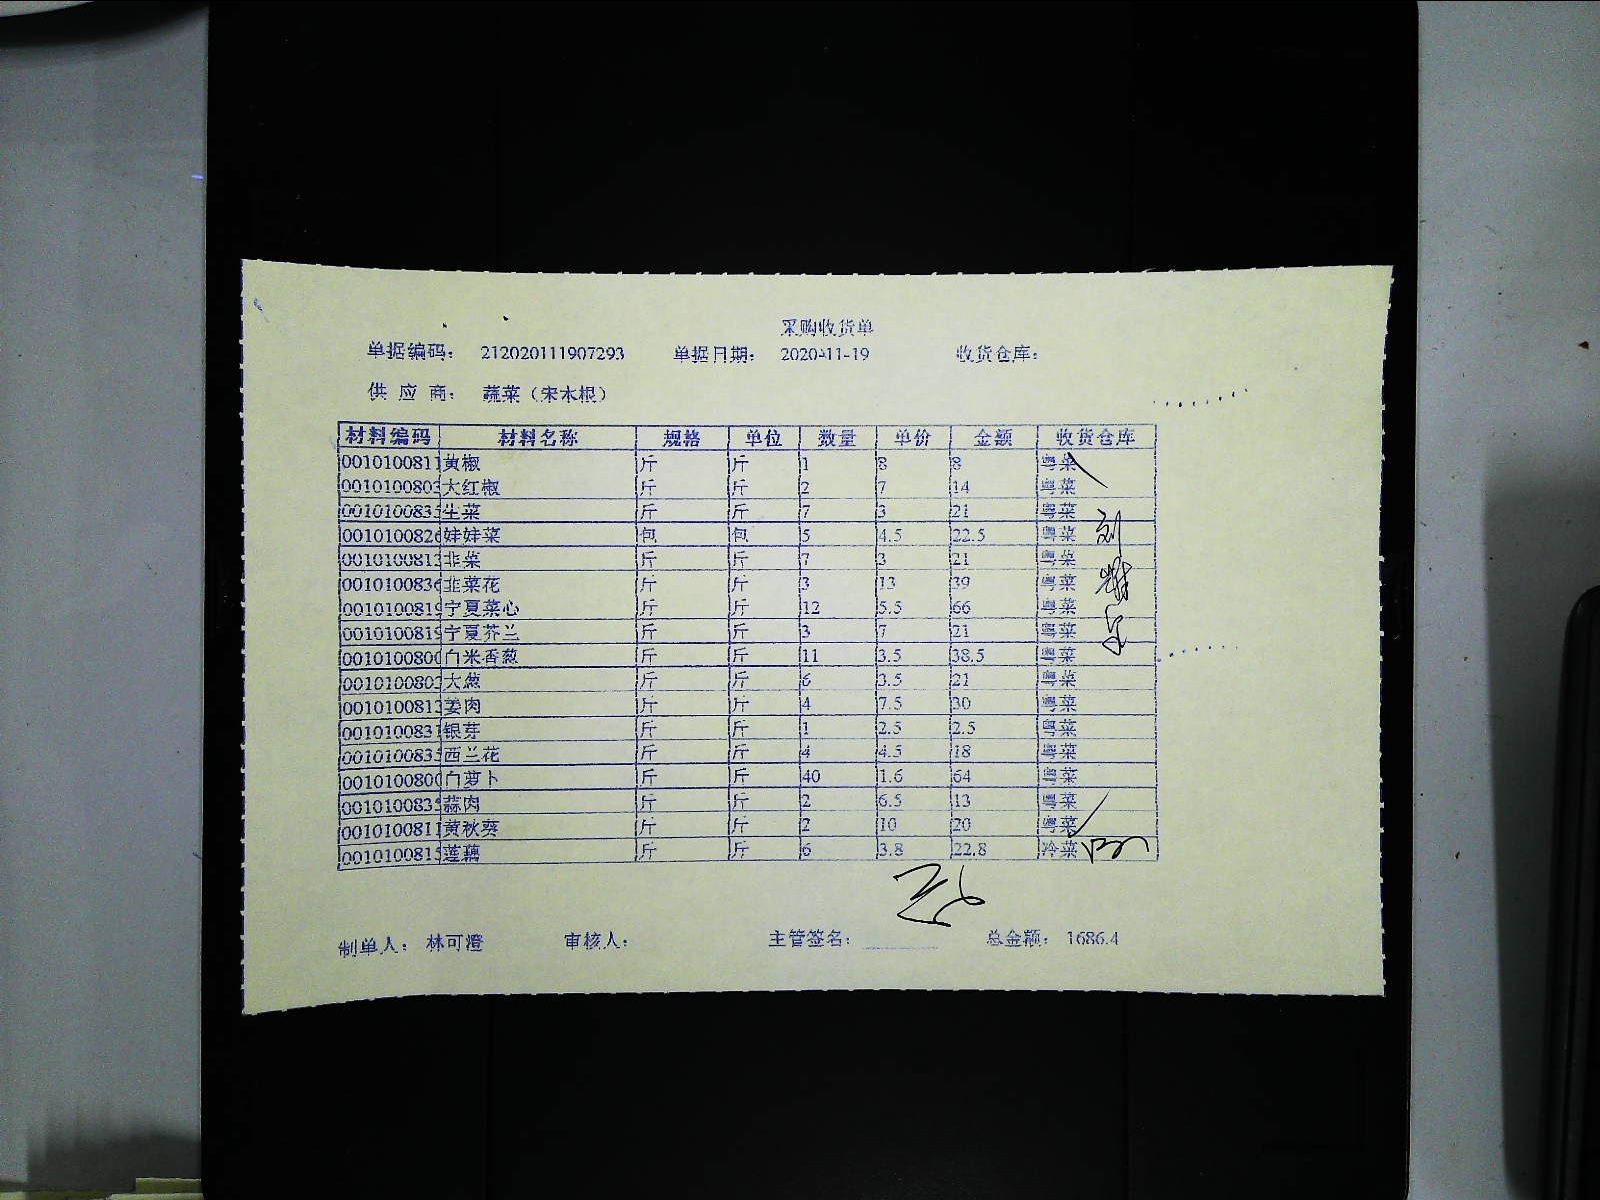 采购收货单
单据编码： 212020111907293 单据日期： 2020-11-19 收货仓库：
供应商： 蔬菜（宋木根）
材料编码 材料名称 规格 单位 数量 单价 金额 收货仓库
0010100811 黄椒 斤 斤 1 8 8 粤菜
001010080 大红椒 斤 斤 2 7 14 粤菜
001010083 生菜 斤 斤 7 3 21 粤菜
001010082 娃娃菜 包 包 5 4.5 22.5 粤菜
001010081 韭菜 斤 斤 7 3 21 粤菜
001010083 韭菜花 斤 斤 3 13 39 粤菜
001010081 宁夏菜心 斤 斤 12 5.5 66 粤菜
001010081 宁夏芥兰 斤 斤 3 7 21 粤菜
001010080 白米香葱 斤 斤 11 3.5 38.5 粤菜
001010080 大葱 斤 斤 6 3.5 21 粤菜
001010081 姜肉 斤 斤 4 7.5 30 粤菜
001010083 银芽 斤 斤 1 2.5 2.5 粤菜
001010083 西兰花 斤 斤 4 4.5 18 粤菜
001010080 白萝卜 斤 斤 40 1.6 64 粤菜
001010083 蒜肉 斤 斤 2 6.5 13 粤菜
0010100811 黄秋葵 斤 斤 2 10 20 粤菜
001010081 莲藕 斤 斤 6 3.8 22.8 冷菜
制单人： 林可澄 审核人： 主管签名： 总金额： 1686.4